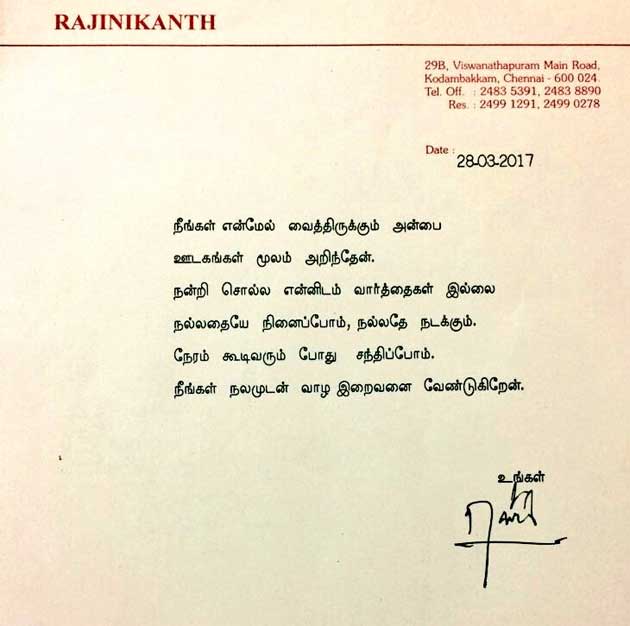 RAJINIKANTH
29B, Viswanathapuram Main Road,
Kodambakkam, Chennai - 600 024.
Tel. Off. : 2483 5391, 2483 8890
Res. : 2499 1291, 2499 0278
Date : 28-03-2017
நீங்கள் என்மேல் வைத்திருக்கும் அன்பை
ஊடகங்கள் மூலம் அறிந்தேன்.
நன்றி சொல்ல என்னிடம் வார்த்தைகள் இல்லை
நல்லதையே நினைப்போம், நல்லதே நடக்கும்.
நேரம் கூடிவரும் போது சந்திப்போம்.
நீங்கள் நலமுடன் வாழ இறைவனை வேண்டுகிறேன்.
உங்கள்